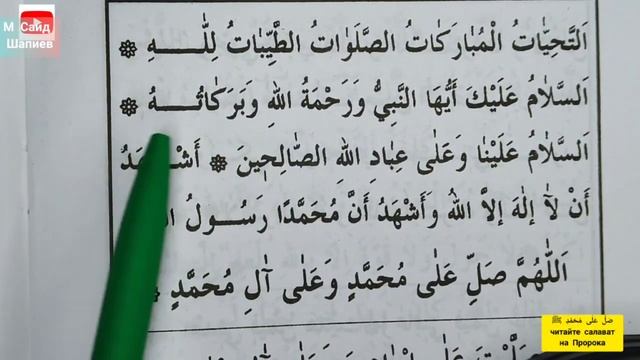 М Саид
Шапиев
اَلتَّحِيَّاتُ الْمُبَارَكَاتُ الصَّلَوَاتُ الطَّيِّبَاتُ لِلّٰهِ
اَلسَّلَامُ عَلَيْكَ أَيُّهَا النَّبِيُّ وَرَحْمَةُ اللهِ وَبَرَكَاتُهُ
اَلسَّلَامُ عَلَيْنَا وَعَلَى عِبَادِ اللهِ الصَّالِحِينَ أَشْهَدُ
أَنْ لَا إِلٰهَ إِلَّا اللهُ وَأَشْهَدُ أَنَّ مُحَمَّدًا رَسُولُ
اَللّٰهُمَّ صَلِّ عَلَى مُحَمَّدٍ وَعَلَى آلِ مُحَمَّدٍ
صَلِّ عَلَى مُحَمَّدٍ ﷺ
читайте салават
на Пророка